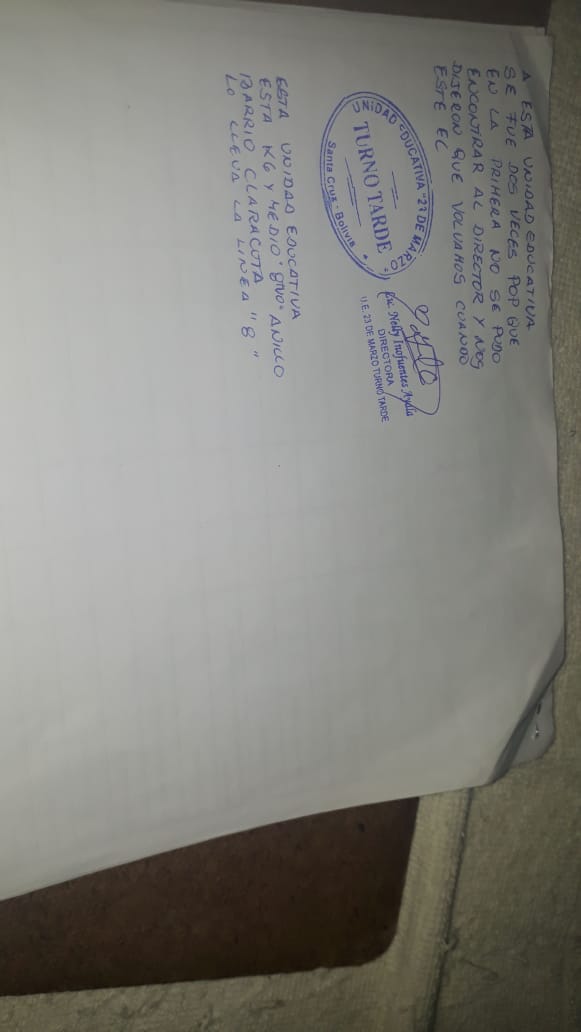 A ESTA UNIDAD EDUCATIVA
SE FUE DOS VECES POP QUE
EN LA PRIMERA NO SE PUDO
ENCONTRAR AL DIRECTOR Y NOS
DIJERON QUE VOLVAMOS CUANDO
ESTE EL
UNIDAD EDUCATIVA "23 DE MARZO"
TURNO TARDE
Santa Cruz - Bolivia
Lic. Nelly Inofuentes
DIRECTORA
U.E. 23 DE MARZO TURNO TARDE
ESTA UNIDAD EDUCATIVA
ESTA K6 Y MEDIO ANILLO
BARRIO CLARACUTA
LO LLEVA LA LINEA "8"